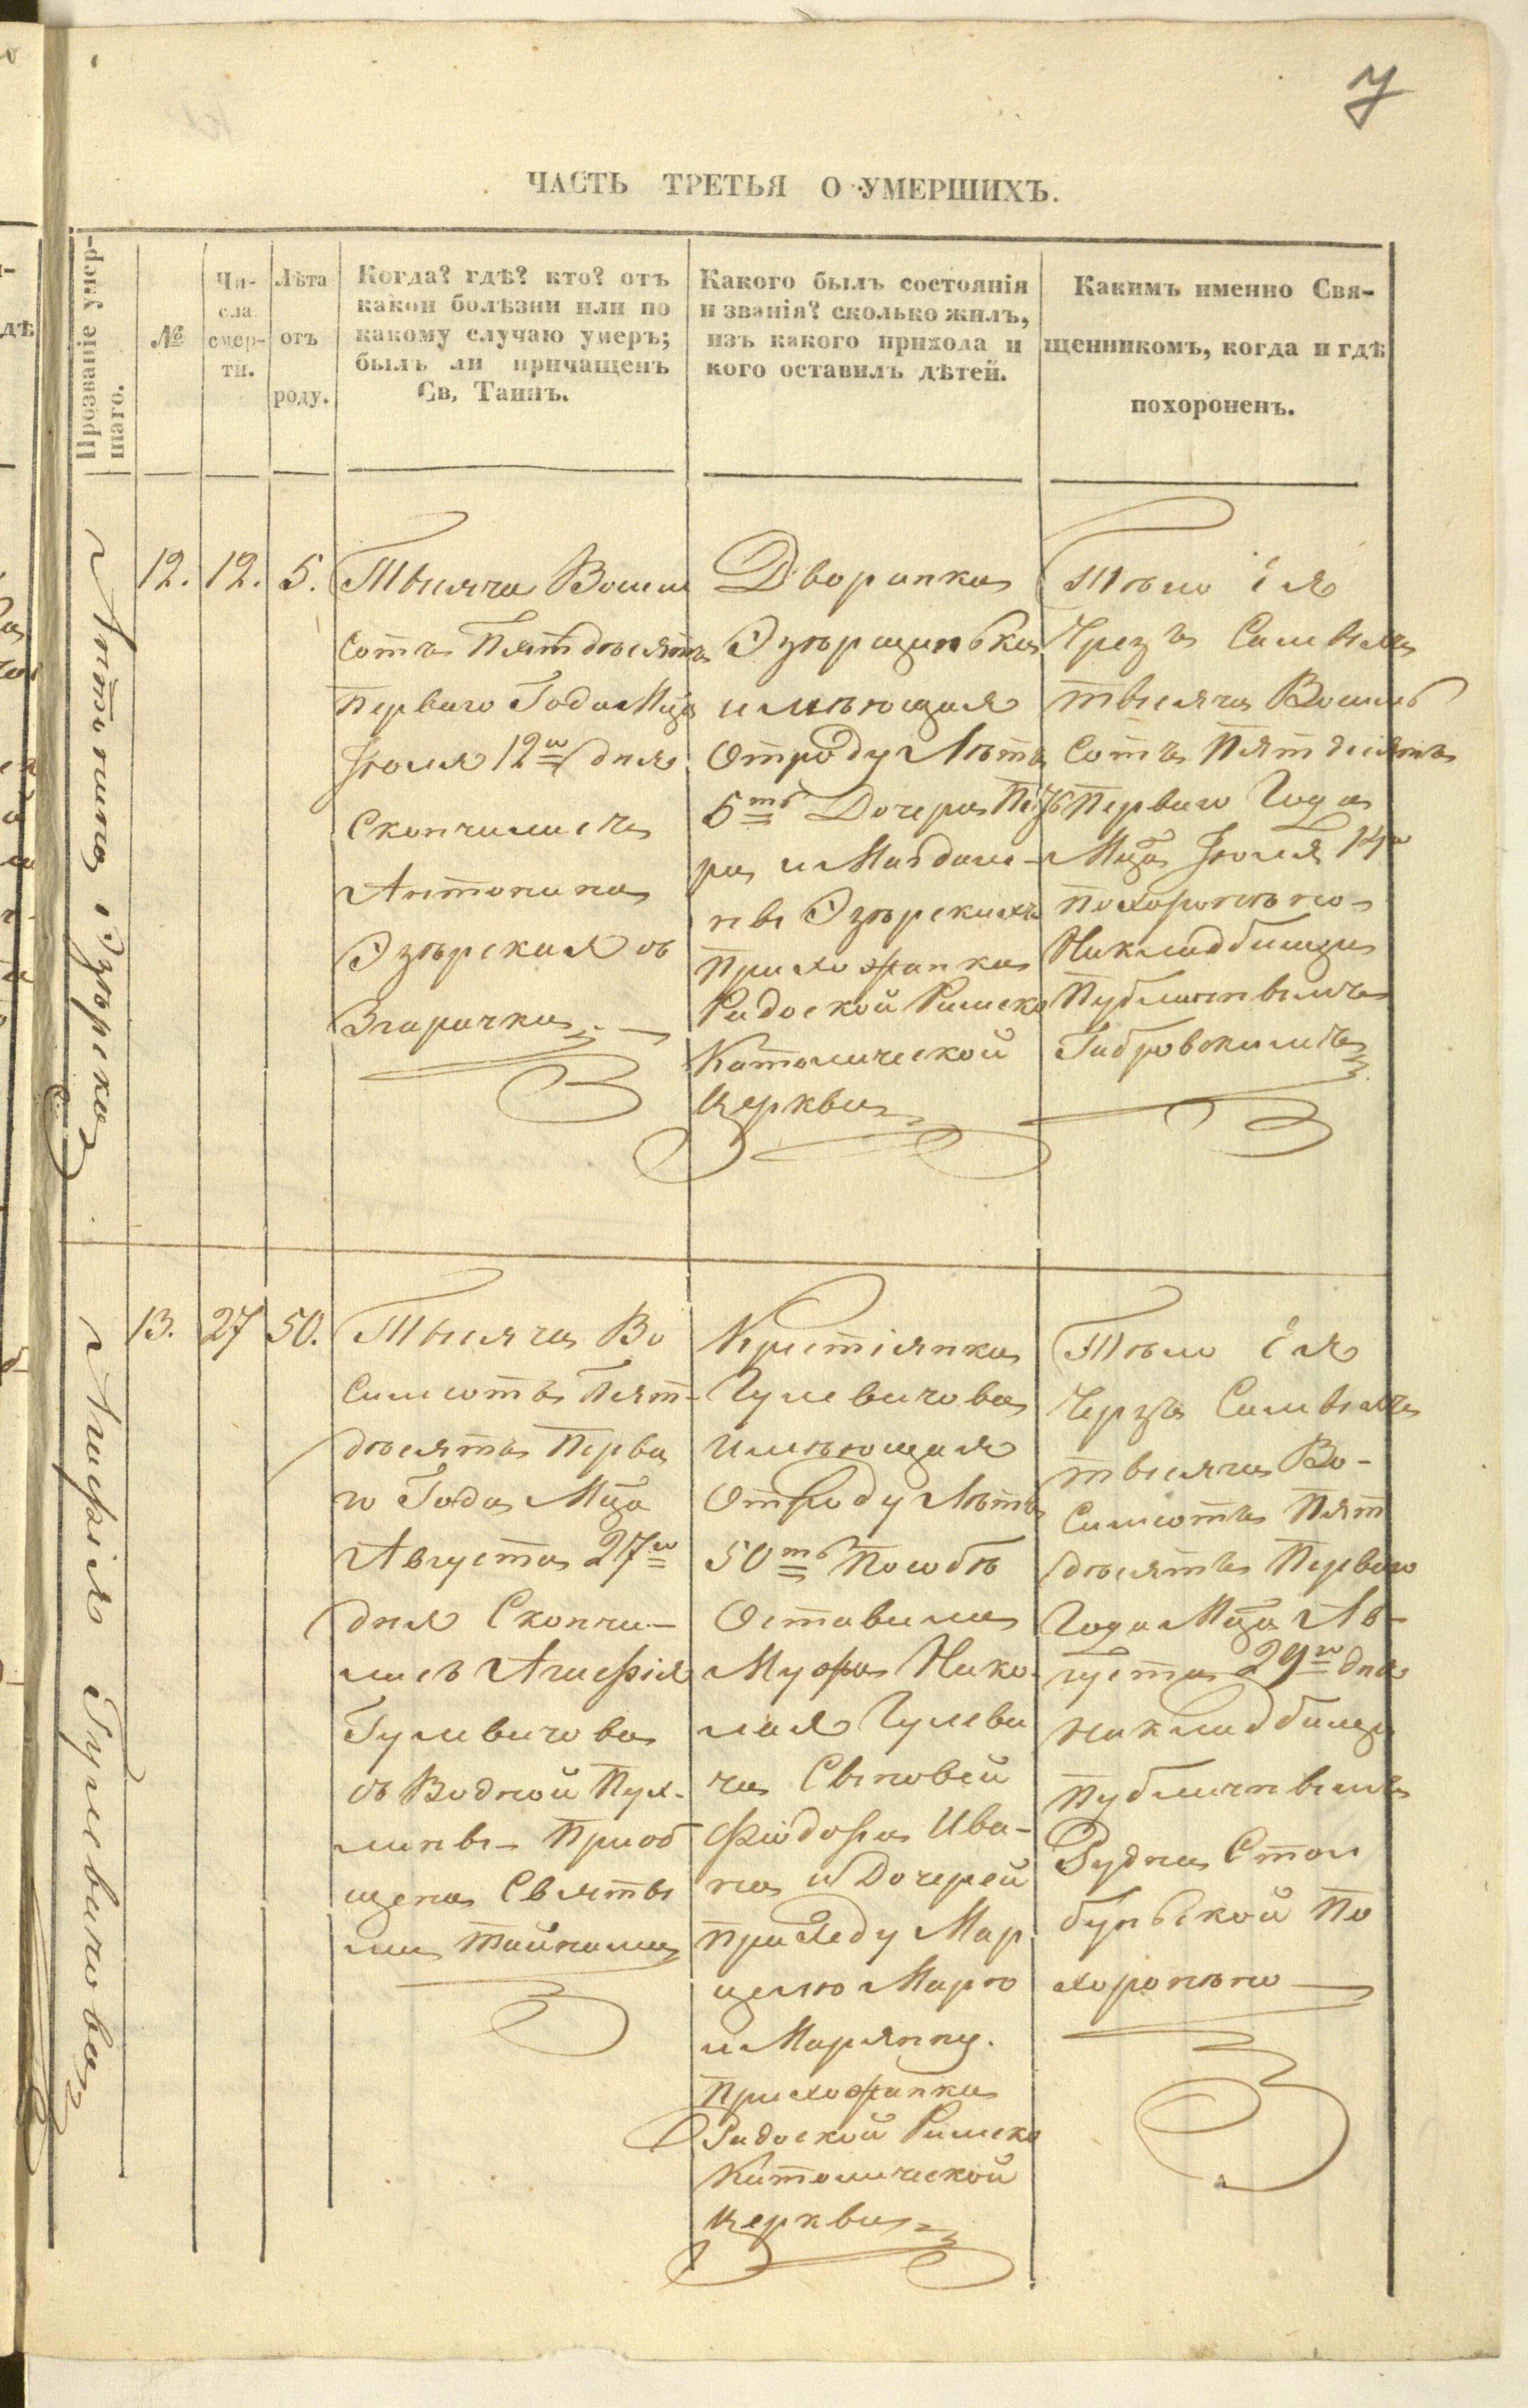 7
ЧАСТЬ ТРЕТЬЯ О УМЕРШИХЪ.
Прозваніе умер-
шаго.
№
Чи-
сла
смер-
ти.
Лѣта
отъ
роду.
Когда? гдѣ? кто? отъ
какой болѣзни или по
какому случаю умеръ;
былъ ли причащенъ
Св. Таинъ.
Какого былъ состоянія
и званія? сколько жилъ,
изъ какого прихода и
кого оставилъ дѣтей.
Какимъ именно Свя-
щенникомъ, когда и гдѣ
похороненъ.
Антонина Эзѣрска
12.
12.
5.
Тысяча Восем
сотъ Пятдѣсятъ
Перваго Года Мца
Іюля 12го дня
Скончилиса
Антонина
Эзѣрская отъ
Згарачка
Дворанка
Эзѣрщинька
имѣющая
Отроду Лѣтъ
5ть Дочера Пет
ра и Магдале-
ны Эзѣрскихъ
Прихожанка
Радоской Римско
Католической
Церква
Тѣло ея
Чрезъ Самыхъ
тысяча Восемь
Сотъ Пятдесятъ
Перваго Года
Мца Іюля 14го
Похоронѣно-
На кладбищи
Публычнымъ
Габровскимъ
Агиефія Гулевичова
13.
27
50.
Тысяча Во
симсотъ Пят-
дѣсятъ Перва
го Года Мца
Августа 27го
дня Скончи-
лись Агиефія
Гулевичова
отъ Водной Пух-
лины Приоб
щена Святы
ми Тайнами
Крестіянка
Гулевичова
имѣющая
Отроду Лѣтъ
50ть По собѣ
Оставила
Мужа Нико-
лая Гулеви
ча Сыновей
Фіодора Ива-
на и Дочерей
Приледу Мар
целю Марю
и Марянну.
Прихожанка
Радоской Римско
Католической
Церква
Тѣло ея
Черзъ Самыхъ
тысяча Во-
симсотъ Пят
дѣсятъ Перваго
Года Мца Ав-
густа 29го дня
на кладбищи
Публичнымъ
Рудна Стол
буньской По
хоронѣно